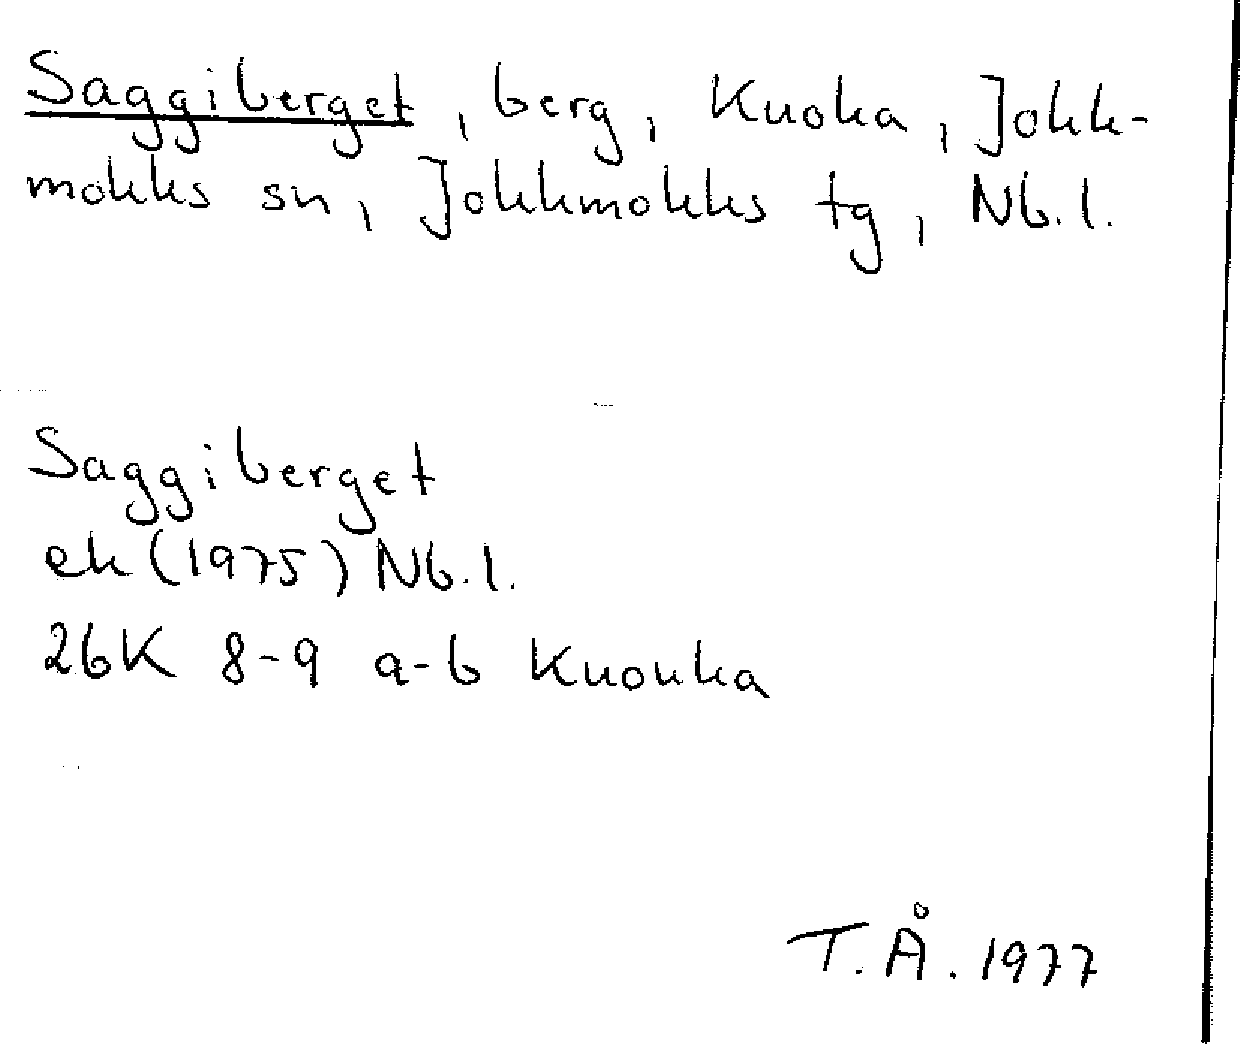 Saggiberget, berg, Kuoka, Jokk-
mokks sn, Jokkmokks tg, Nb.l.
Saggiberget
ek (1975) Nb.l.
26K 8-9 a-b Kuouka
T.Å. 1977